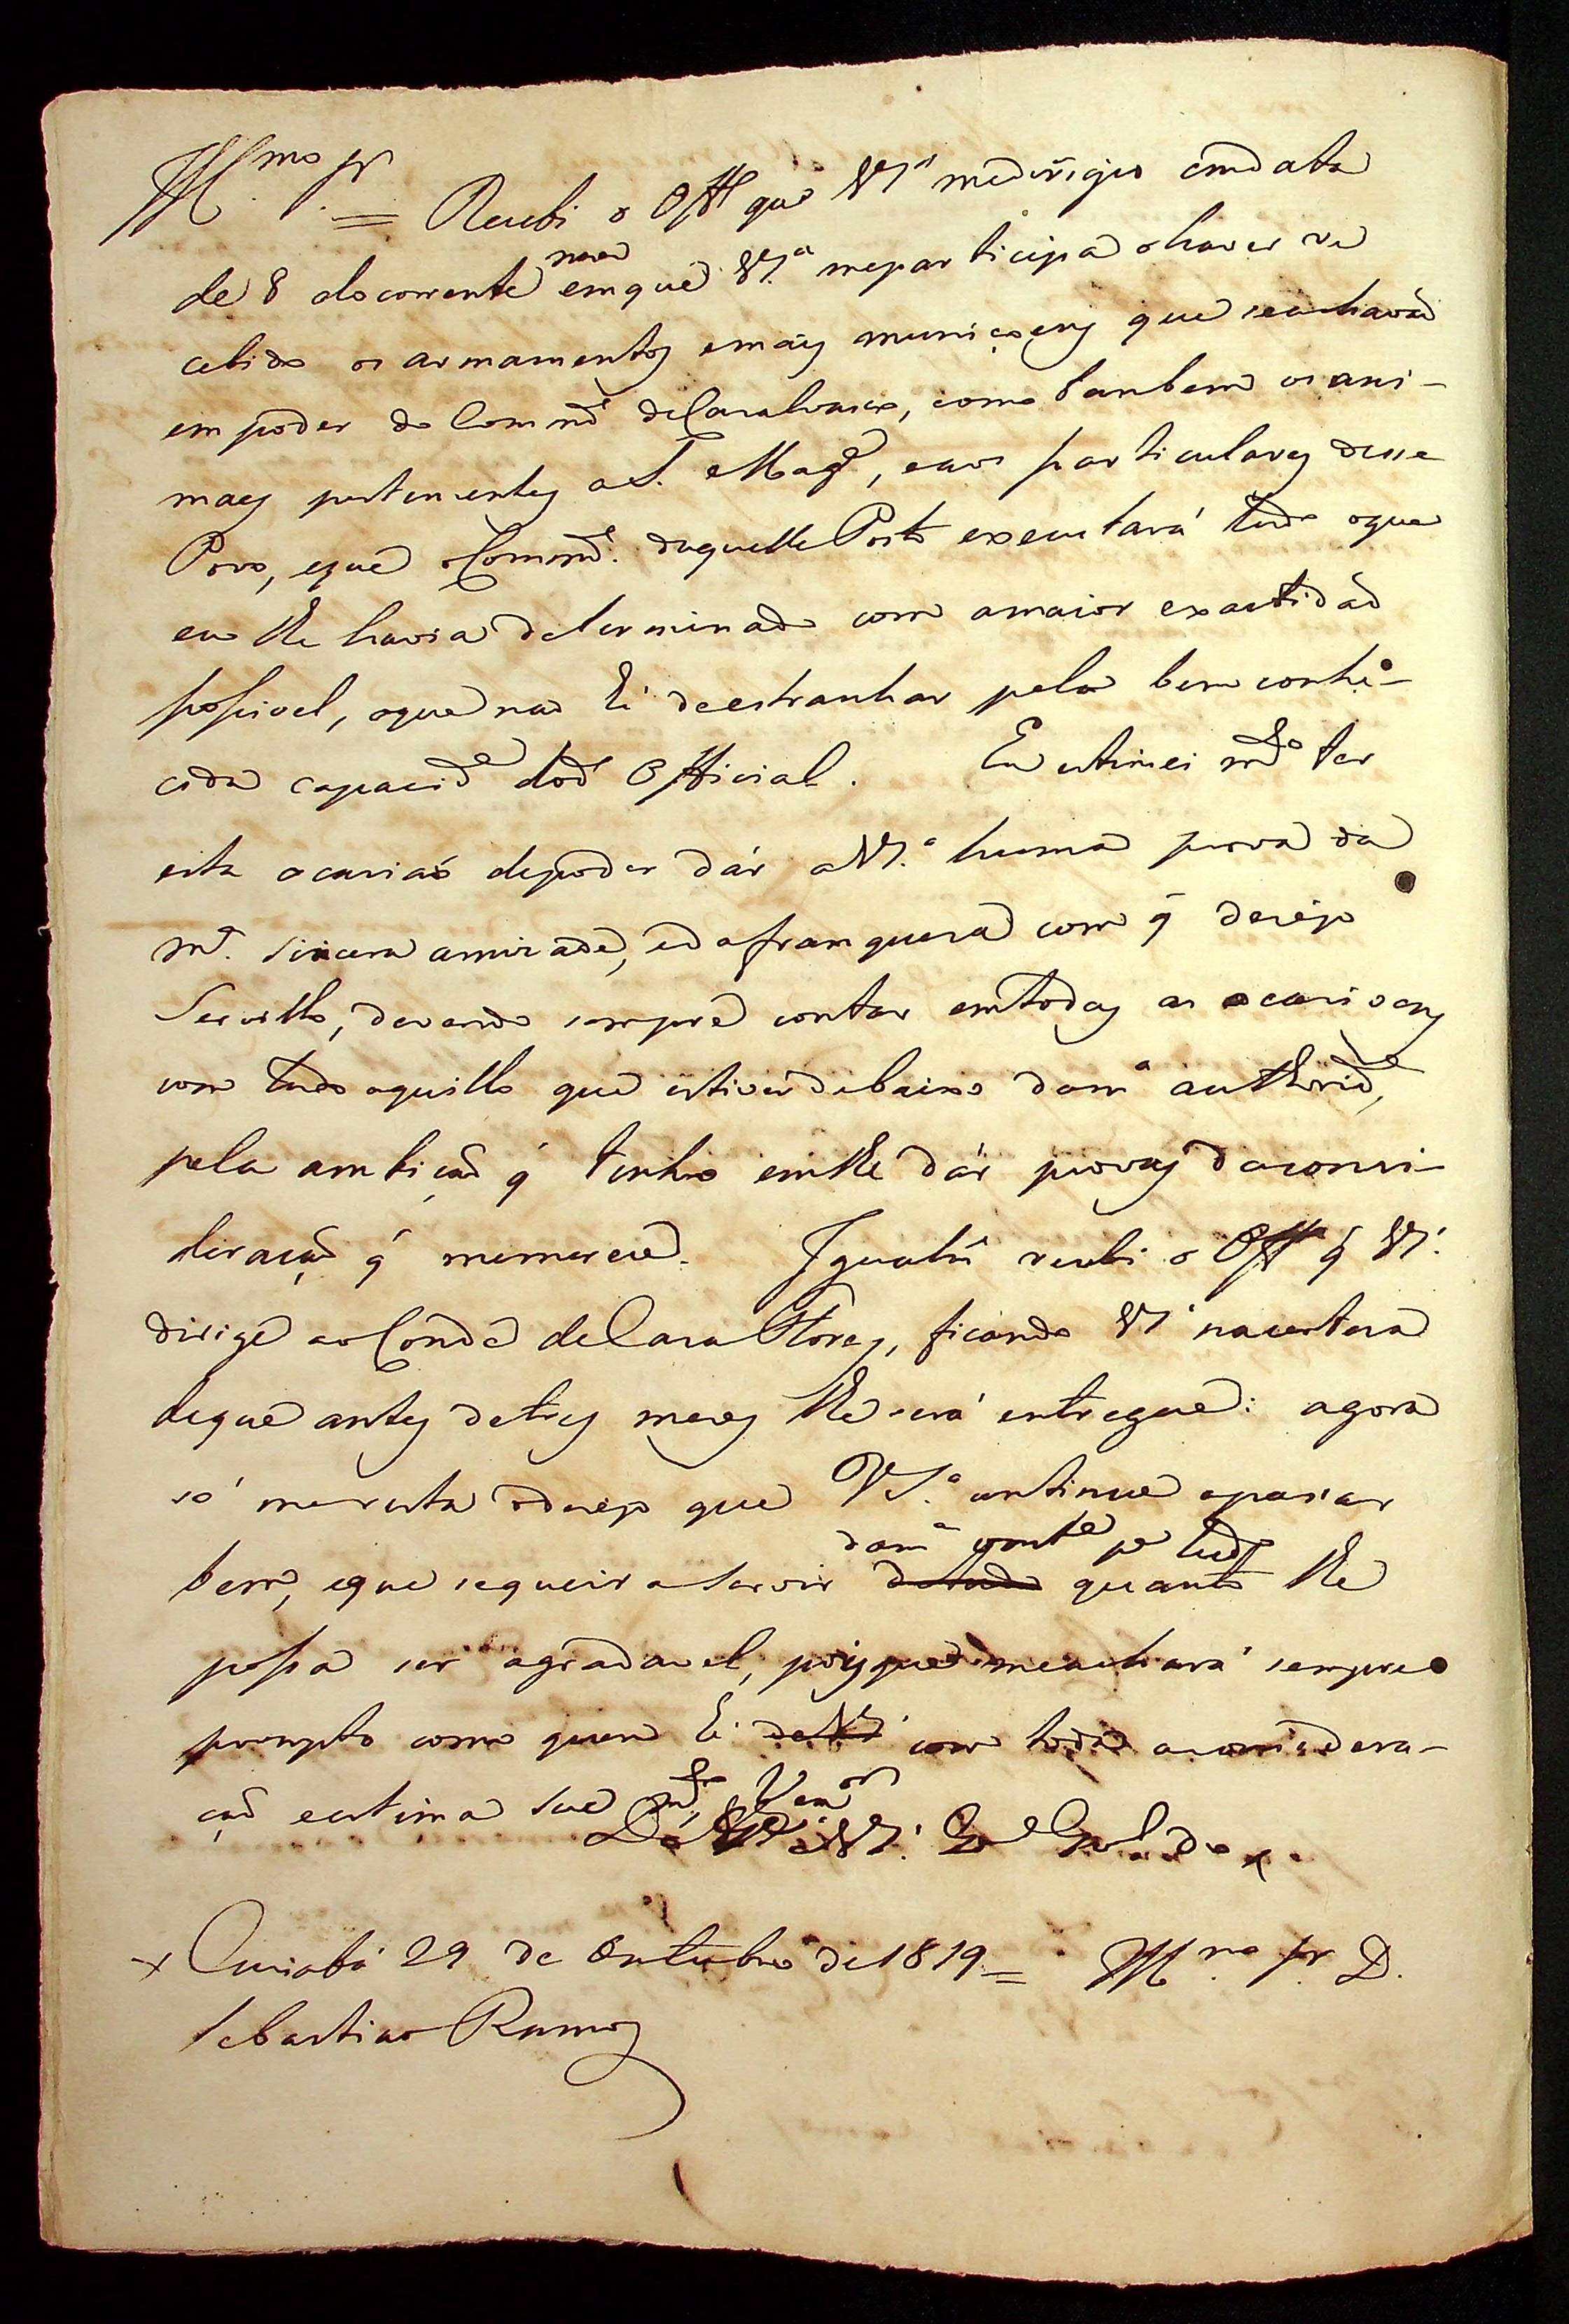 Illmo Sr = Recebi o Offo que VSa medirigio emdata
de 8 docorrente mez emque VSa meparticipa ohaver re
cebido os armamentos emais muniçoens que seachavaõ
empoder do Commde deCasalvasco, como tambem osani-
maes pertencentes aS. Mage, eaos particulares desse
Povo, eque oCommde daquelle Posto executará tudo oque
eu lhe havia determinado com amaior exactidaõ
possivel, oque naõ hé deestranhar pela bem conhe-
cida capacide dod Official. Eu estimei mto ter
esta ocasiaõ depoder dár aVSa huma prova da
ma sincera amizade, eda franqueza com q̃ desejo
Servillo, devendo sempre contar emtodas as ocasioens
com tudo aquillo que estiver debaixo dama authoride,
pela ambiçaõ q̃ tenho emlhe dár provas daconsi-
deraçaõ q̃ memerece. Igualme recebi o Offo q̃ VSa
dirige aoConde deCasa Flores, ficando VSa nacerteza
deque antes detres mezes lhe será entregue: agora
só meresta odesejo que VSa continue apassar
bem, eque sequeira servir dama vonte pa tudo quanto lhe
possa ser agradavel, poisque meachará sempre
prompto como quem hé com toda aconsidera-
çaõ eestima Seu mto Venor
De VSa
x Cuiabá 29 de Outubro de 1819 = Illmo Sr D.
Sebastiao Ramos